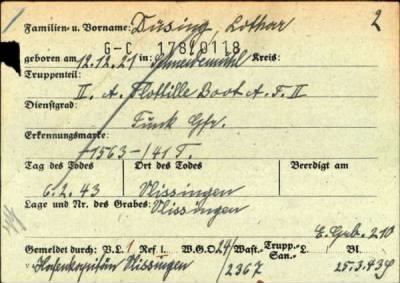 Familien- u. Vorname: Düsing, Lothar 2
G-C 178/0118
geboren am 12.12.21 in: Schneidemühl Kreis:
Truppenteil:
II. A. Flottille Boot A. F. II
Dienstgrad:
Funk Gfr.
Erkennungsmarke:
-1563-/41 T.
Tag des Todes Ort des Todes Beerdigt am
6.2.43 Vlissingen
Lage und Nr. des Grabes: Vlissingen
E. Grb. 210
Gemeldet durch: V.L. 1 Ref I. W.G.O 24/ Wast.- Trupp.- San.- L. Bl.
v. Hafenkapitän Vlissingen 2367 25.3.43